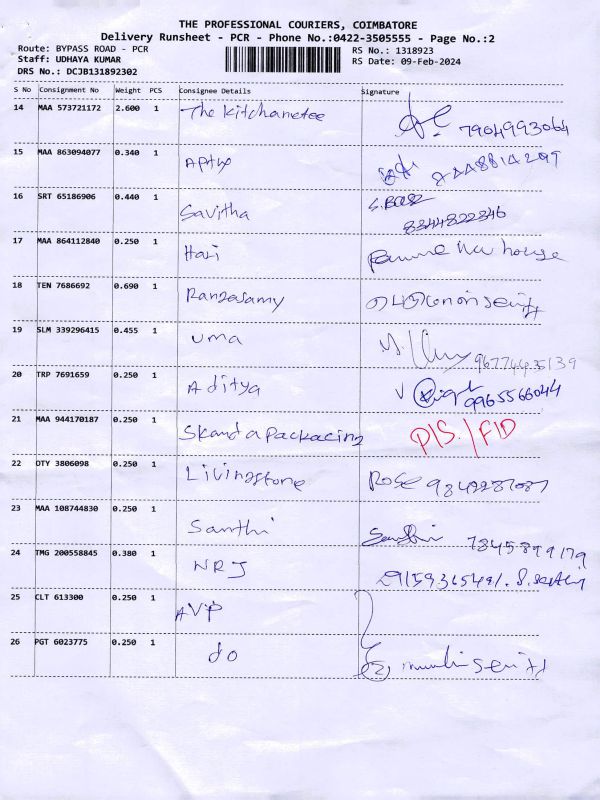 THE PROFESSIONAL COURIERS, COIMBATORE
Delivery Runsheet - PCR - Phone No.:0422-3505555 - Page No.:2
Route: BYPASS ROAD - PCR
RS No.: 1318923
Staff: UDHAYA KUMAR
RS Date: 09-Feb-2024
DRS No.: DCJB131892302
S No Consignment No Weight PCS Consignee Details Signature
14 MAA 573721172 2.600 1 The Kitchanetee 7904993064
15 MAA 863094077 0.340 1
16 SRT 65186906 0.440 1 Savitha
8344822346
17 MAA 864112840 0.250 1 Hari house
18 TEN 7686692 0.690 1 Rangasamy
19 SLM 339296415 0.455 1 Uma
20 TRP 7691659 0.250 1 Aditya 9965566044
21 MAA 944170187 0.250 1 Skanda packacing
22 OTY 3806098 0.250 1 Livingstone Rose
23 MAA 108744830 0.250 1 Santhi Santhi
24 TMG 200558845 0.380 1 NRJ
25 CLT 613300 0.250 1 AVP
26 PGT 6023775 0.250 1 do